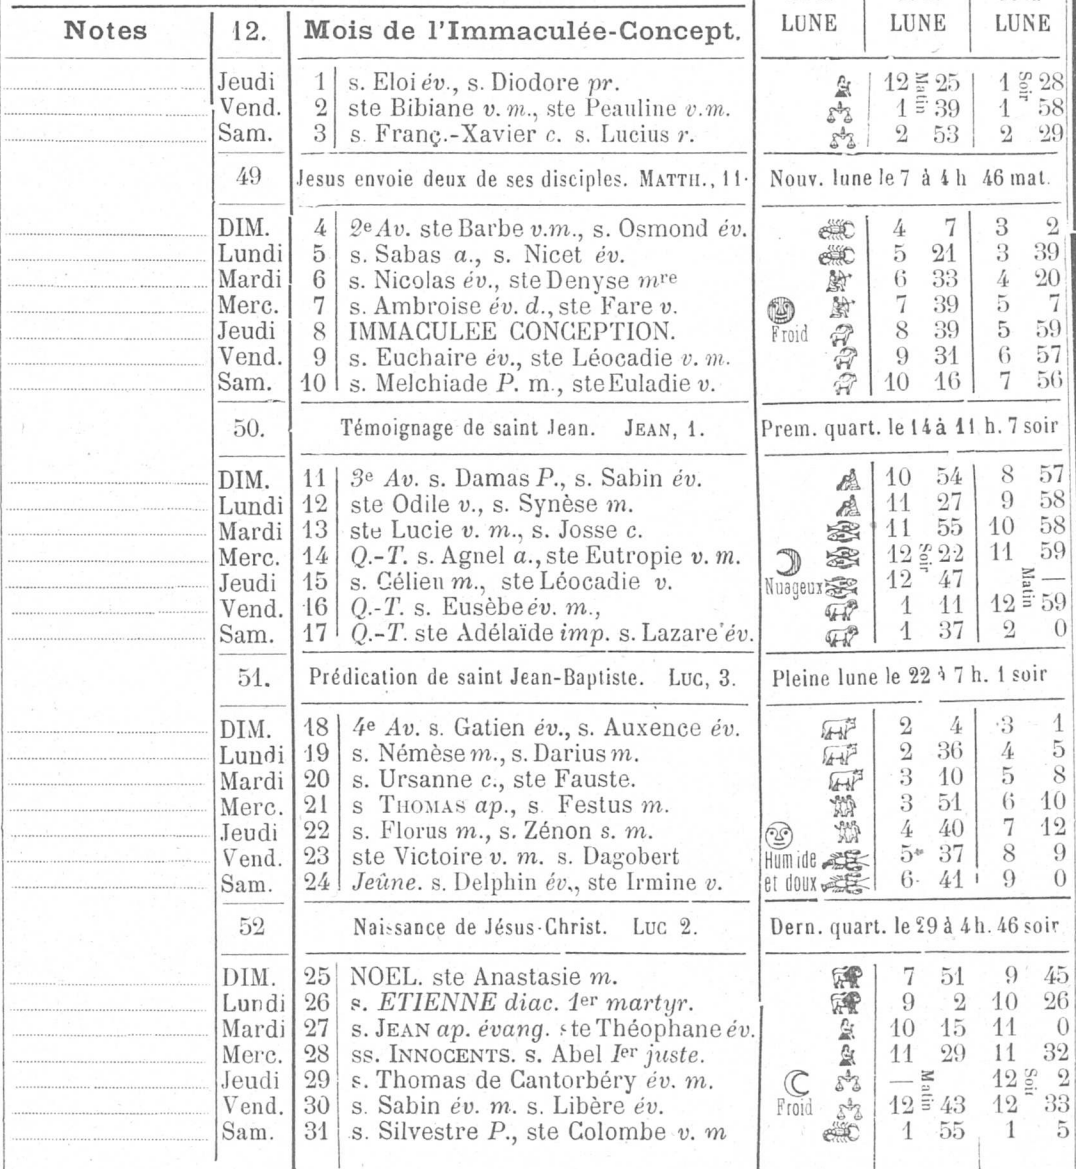 Notes 12. Mois de l'Immaculée-Concept. LUNE LUNE LUNE
Jeudi 1 s. Eloi év., s. Diodore pr. 12 Matin 25 1 Soir 28
Vend. 2 ste Bibiane v. m., ste Peauline v.m. 1 39 1 58
Sam. 3 s. Franç.-Xavier c. s. Lucius r. 2 53 2 29
49 Jesus envoie deux de ses disciples. MATTH., 11. Nouv. lune le 7 à 4 h 46 mat.
DIM. 4 2e Av. ste Barbe v.m., s. Osmond év. 4 7 3 2
Lundi 5 s. Sabas a., s. Nicet év. 5 21 3 39
Mardi 6 s. Nicolas év., ste Denyse mre 6 33 4 20
Merc. 7 s. Ambroise év. d., ste Fare v. 7 39 5 7
Jeudi 8 IMMACULEE CONCEPTION. Froid 8 39 5 59
Vend. 9 s. Euchaire év., ste Léocadie v. m. 9 31 6 57
Sam. 10 s. Melchiade P. m., ste Euladie v. 10 16 7 56
50. Témoignage de saint Jean. JEAN, 1. Prem. quart. le 14 à 11 h. 7 soir
DIM. 11 3e Av. s. Damas P., s. Sabin év. 10 54 8 57
Lundi 12 ste Odile v., s. Synèse m. 11 27 9 58
Mardi 13 ste Lucie v. m., s. Josse c. 11 55 10 58
Merc. 14 Q.-T. s. Agnel a., ste Eutropie v. m. 12 Soir 22 11 59
Jeudi 15 s. Célien m., ste Léocadie v. Nuageux 12 47 Matin —
Vend. 16 Q.-T. s. Eusèbe év. m., 1 11 12 59
Sam. 17 Q.-T. ste Adélaïde imp. s. Lazare év. 1 37 2 0
51. Prédication de saint Jean-Baptiste. LUC, 3. Pleine lune le 22 à 7 h. 1 soir
DIM. 18 4e Av. s. Gatien év., s. Auxence év. 2 4 3 1
Lundi 19 s. Némèse m., s. Darius m. 2 36 4 5
Mardi 20 s. Ursanne c., ste Fauste. 3 10 5 8
Merc. 21 s THOMAS ap., s. Festus m. 3 51 6 10
Jeudi 22 s. Florus m., s. Zénon s. m. 4 40 7 12
Vend. 23 ste Victoire v. m. s. Dagobert Humide 5 37 8 9
Sam. 24 Jeûne. s. Delphin év., ste Irmine v. et doux 6 41 9 0
52 Naissance de Jésus-Christ. LUC 2. Dern. quart. le 29 à 4 h. 46 soir
DIM. 25 NOEL. ste Anastasie m. 7 51 9 45
Lundi 26 s. ETIENNE diac. 1er martyr. 9 2 10 26
Mardi 27 s. JEAN ap. évang. ste Théophane év. 10 15 11 0
Merc. 28 ss. INNOCENTS. s. Abel Ier juste. 11 29 11 32
Jeudi 29 s. Thomas de Cantorbéry év. m. — Matin 12 Soir 2
Vend. 30 s. Sabin év. m. s. Libère év. Froid 12 43 12 33
Sam. 31 s. Silvestre P., ste Colombe v. m 1 55 1 5